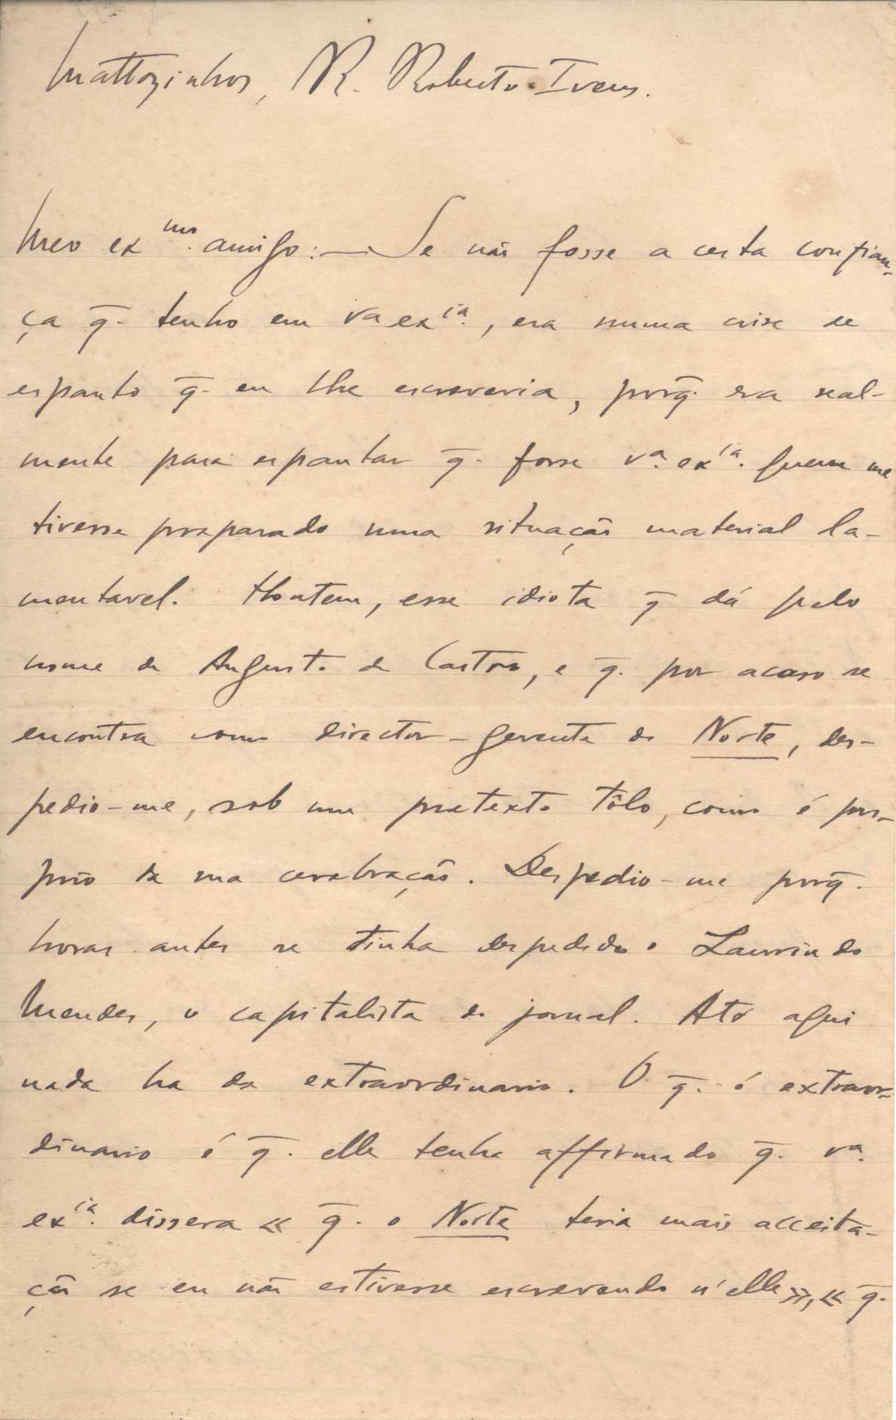 Mattozinhos, R. Roberto Ivens.
Meo ex.mo amigo: — Se não fosse a certa confian-
ça q̄. tenho em v.a ex.cia, era numa crise de
espanto q̄. eu lhe escreveria, porq̄. era real-
mente para espantar q̄. fosse v.a ex.cia quem me
tivesse preparado uma situação material la-
mentavel. Hontem, esse idiota q̄ dá pelo
nome de Augusto de Castro, e q̄. por acaso se
encontra como director-gerente do Norte, des-
pedio-me, sob um pretexto tôlo, como é pro-
prio da sua cerebração. Despedio-me porq̄.
horas antes se tinha despedido o Laurindo
Mendes, o capitalista do jornal. Até aqui
nada ha de extraordinario. O q̄. é extraor-
dinario é q̄. elle tenha affirmado q̄. v.a
ex.cia dissera « q̄. o Norte teria mais acceita-
ção se eu não estivesse escrevendo n'elle», « q̄.